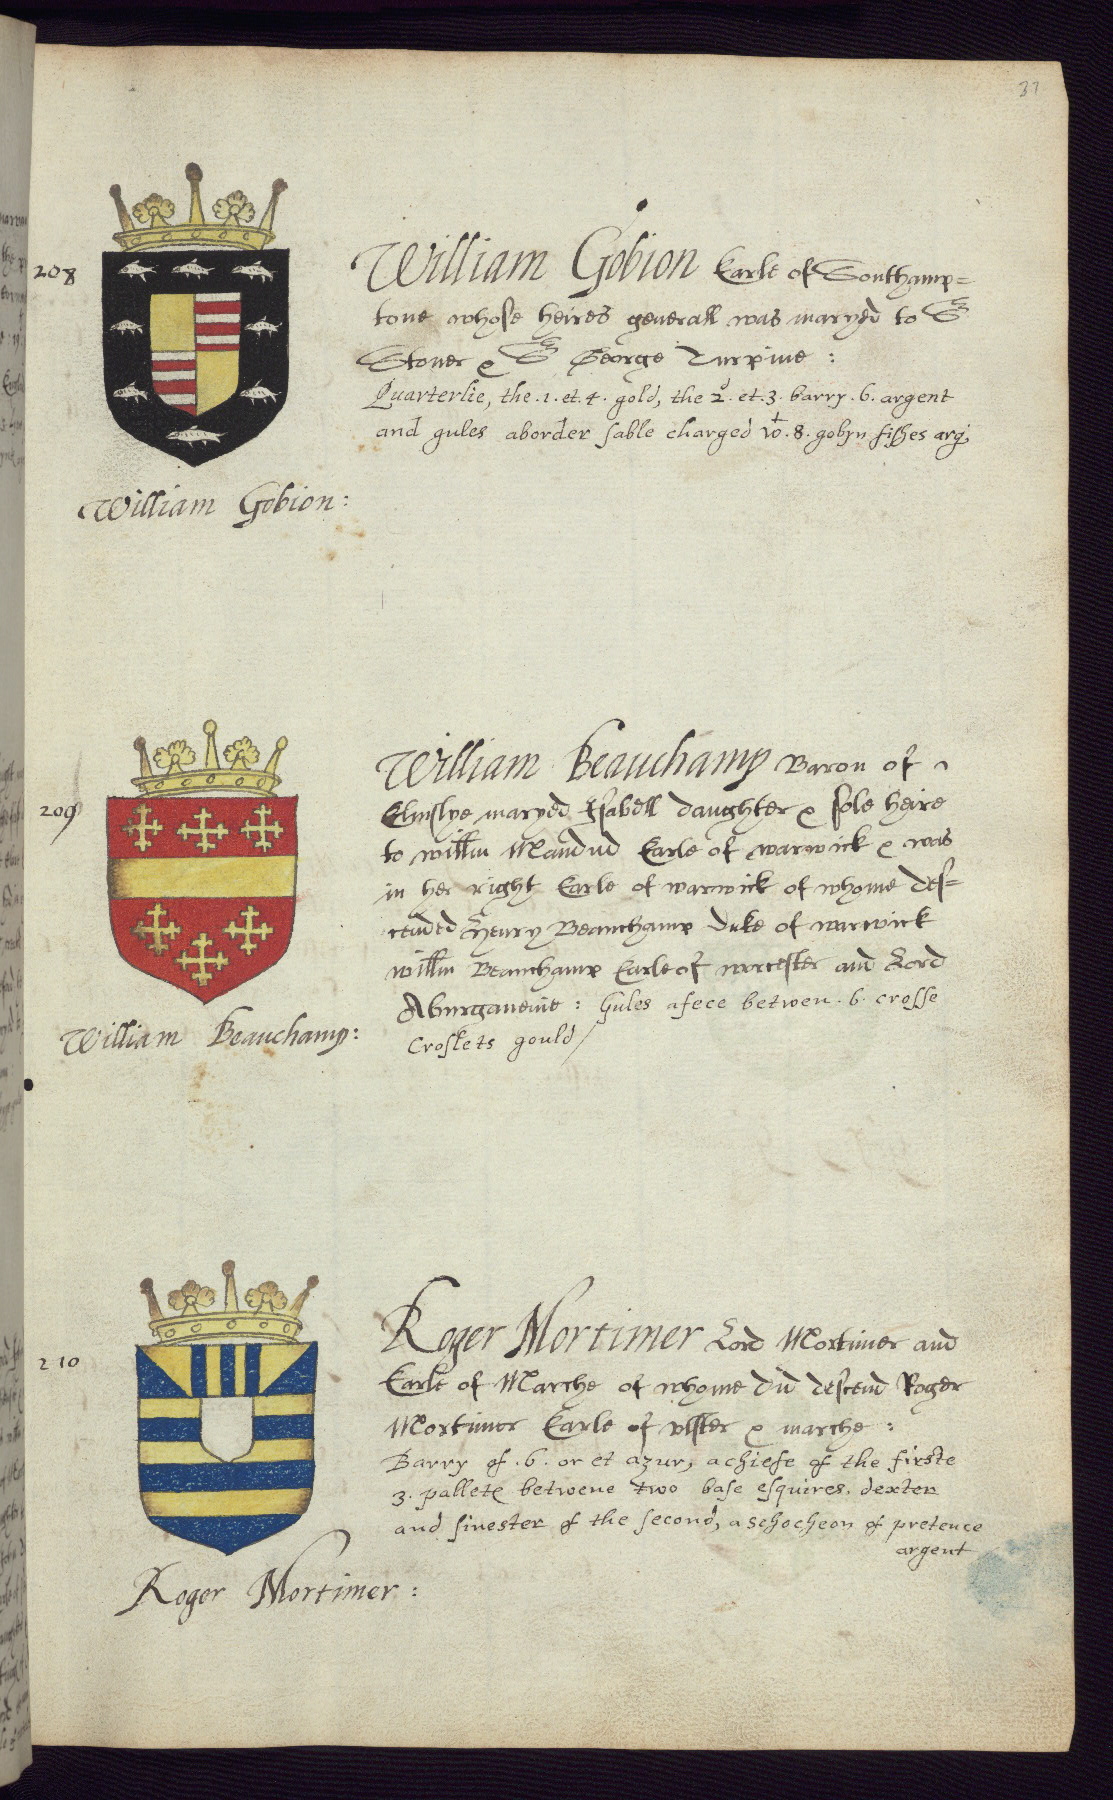 37
208
William Gobion Earle of Southamp=
tone whose heires generall was maryed to Sr
Stoner & Sr George Turpine :
Quarterlie, the .1. et. 4. gold, the 2d. et. 3. barry. 6. argent
and gules aborder sable charged wt. 8. gobyn fishes arg.
William Gobion :
209
William Beauchamp Baron of
Elmslye maryed Isabell daughter & sole heire
to willm Maudud Earle of warwick & was
in her right Earle of warwick of whome des=
cended Henry Beauchamp Duke of warwick
willm Beauchamp Earle of worcester and Lord
Aburgaueine : Gules afece betwen . 6. crosse
Croslets gould /
William Beauchamp :
210
Roger Mortimer Lord Mortimer and
Earle of Marche of whome did descend Roger
Mortimer Earle of vlster & marche :
Barry of . 6. or et azur, a chiefe of the firste
3. pallets betwene two base esquires. dexter
and sinester of the second, a schocheon of pretence
argent
Roger Mortimer :